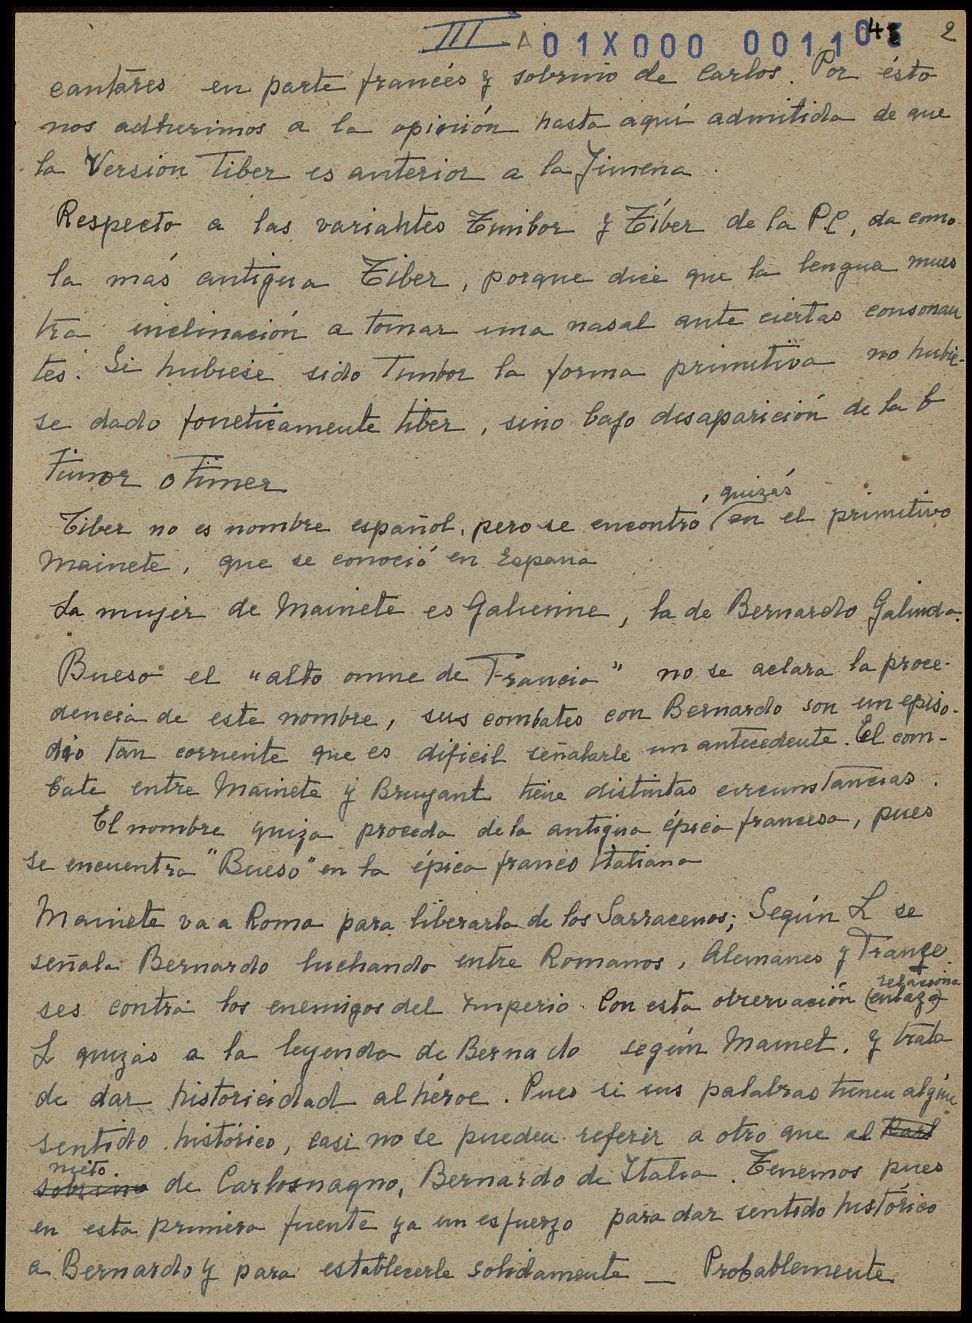 III A01X000 0011 2
cantares en parte francés y sobrino de Carlos. Por ésto
nos adherimos a la opinión hasta aquí admitida de que
la Versión Tiber es anterior a la Jimena.
Respecto a las variantes Timbor y Tíber de la PC, da como
la más antigua Tiber, porque dice que la lengua mues
tra inclinación a tomar una nasal ante ciertas consonan
tes. Si hubiese sido Timbor la forma primitiva no hubie-
se dado foneticamente tiber, sino bajo desaparición de la b
Timor o Timer
quizás
Tiber no es nombre español, pero se encontró, en el primitivo
Mainete, que se conoció en España
La mujer de Mainete es Galienne, la de Bernardo Galinda.
Bueso el "alto omne de Francia" no se aclara la proce-
dencia de este nombre, sus combates con Bernardo son un episo-
dio tan corriente que es dificil señalarle un antecedente. El com-
bate entre Mainete y Bruyant tiene distintas circunstancias.
El nombre quiza proceda de la antigua épica francesa, pues
se encuentra "Bueso" en la épica franco italiana
Mainete va a Roma para liberarla de los Sarracenos; Según L se
señala Bernardo luchando entre Romanos, Alemanes y France
relaciona
ses contra los enemigos del Imperio. Con esta observación (enlaza)
L quizás a la leyenda de Bernardo según Mainet. y trata
de dar historicidad al héroe. Pues si sus palabras tienen algún
sentido histórico, casi no se pueden referir a otro que al Karl
nieto
sobrino de Carlosmagno, Bernardo de Italia. Tenemos pues
en esta primera fuente ya un esfuerzo para dar sentido histórico
a Bernardo y para establecerle solidamente _ Probablemente